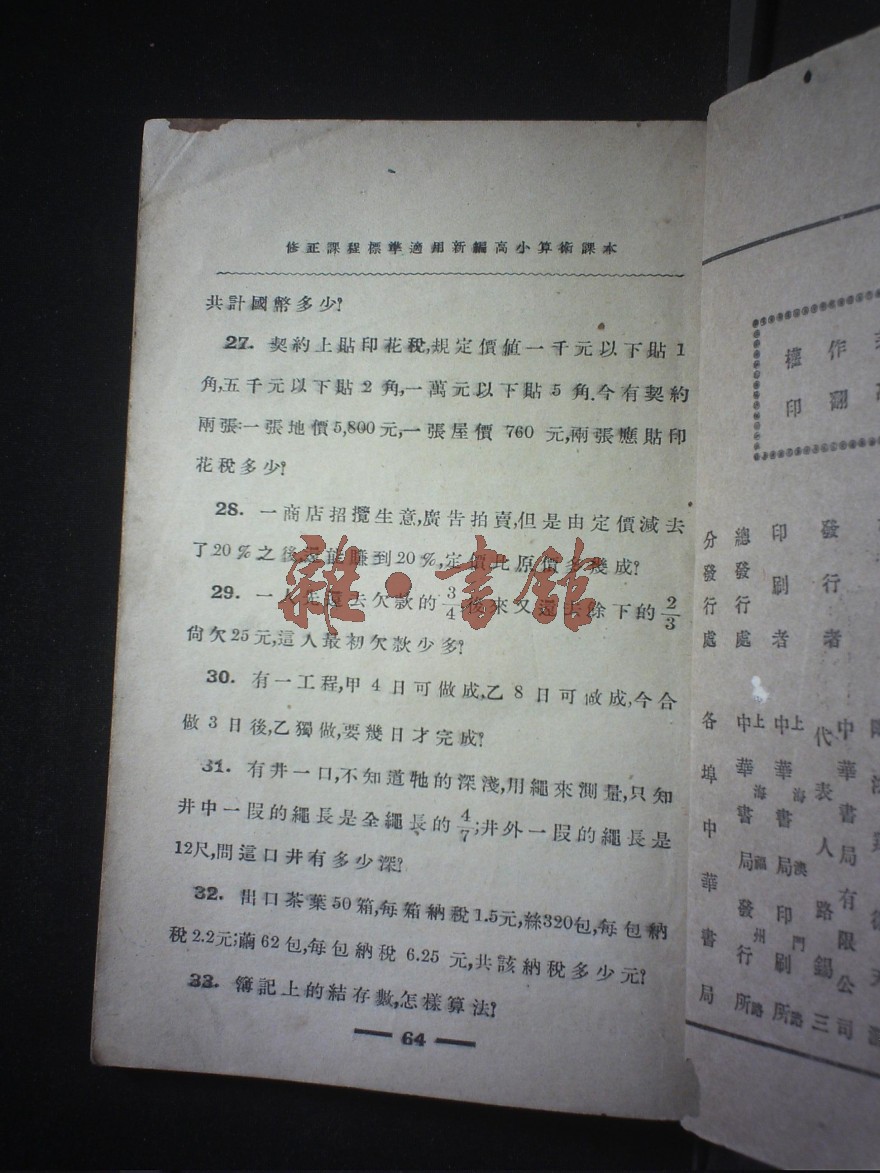 修正課程標準適用新編高小算術課本
共計國幣多少?
27. 契約上貼印花稅,規定價値一千元以下貼1
角,五千元以下貼2角,一萬元以下貼5角.今有契約
兩張:一張地價5,800元,一張屋價 760 元,兩張應貼印
花稅多少?
28. 一商店招攬生意,廣告拍賣,但是由定價減去
了20%之後,還能賺到20%,定價比原價多幾成?
29. 一人先還去欠款的3/4,後來又還去餘下的2/3
尙欠25元,這人最初欠款少多?
30. 有一工程,甲4日可做成,乙8日可做成,今合
做3日後,乙獨做,要幾日才完成?
31. 有井一口,不知道牠的深淺,用繩來測量,只知
井中一段的繩長是全繩長的4/7;井外一段的繩長是
12尺,問這口井有多少深?
32. 出口茶葉50箱,每箱納稅1.5元,絲320包,每包納
稅2.2元;繭62包,每包納稅 6.25 元,共該納稅多少元?
33. 簿記上的結存數,怎樣算法?
64
雜·書館
作翻
權印
發行者
中華書局有限公司
代表人 路錫三
印刷者
上海澳門路
中華書局印刷所
總發行處
上海福州路
中華書局發行所
分發行處
各埠中華書局